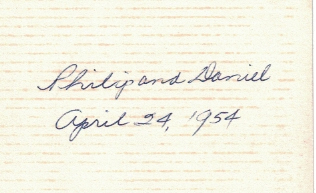 Philip and Daniel
April 24, 1954